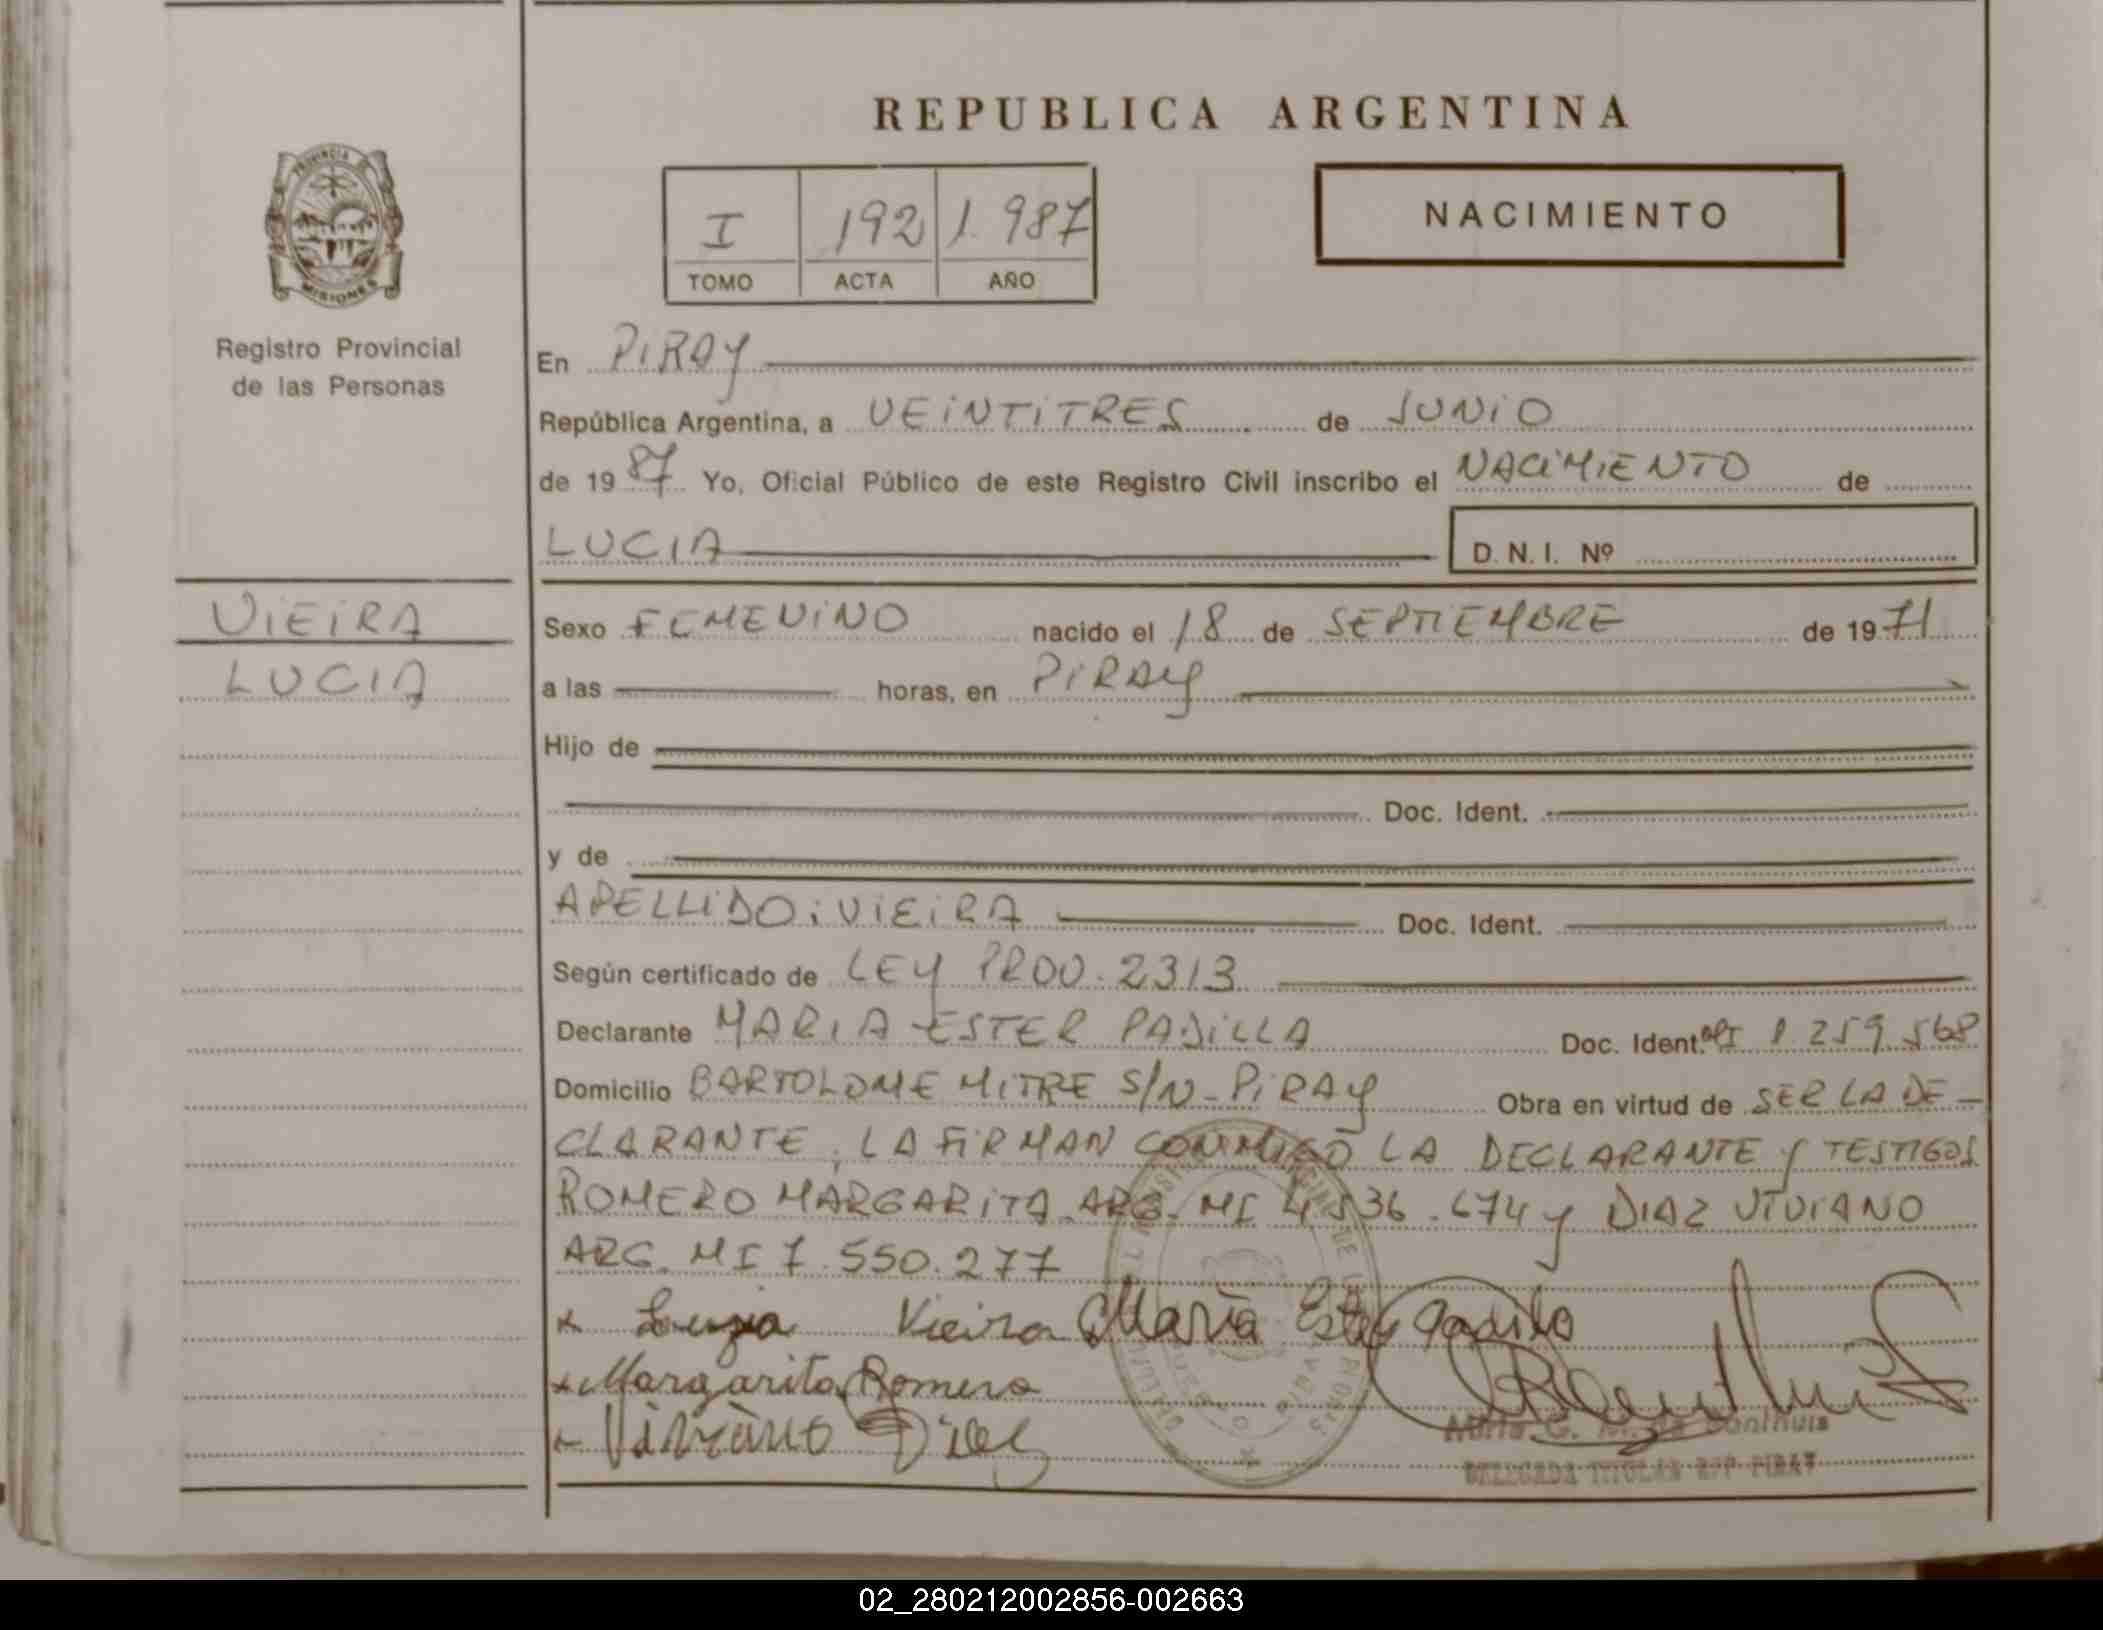 REPUBLICA ARGENTINA
PROVINCIA DE
MISIONES
Registro Provincial
de las Personas
I 192 1.987
TOMO ACTA AÑO
NACIMIENTO
En PIRAY
República Argentina, a VEINTITRES de JUNIO
de 1987 Yo, Oficial Público de este Registro Civil inscribo el NACIMIENTO de
LUCIA D.N.I. Nº
VIEIRA
LUCIA
Sexo FEMENINO nacido el 18 de SEPTIEMBRE de 1971
a las horas, en PIRAY
Hijo de
Doc. Ident.
y de
APELLIDO: VIEIRA Doc. Ident.
Según certificado de LEY PROV. 2313
Declarante MARIA ESTER PADILLA Doc. Ident. 1.259.568
Domicilio BARTOLOME MITRE S/N - PIRAY Obra en virtud de SER LA DE-
CLARANTE, LA FIRMAN CONMIGO LA DECLARANTE y TESTIGOS
ROMERO MARGARITA ARG. MI 4.536.674 y DIAZ VIVIANO
ARG. MI 7.550.277
x Vieira María Ester Padilla
x Margarita Romero
x Viviano Diaz
DELEGADA TITULAR RPP PIRAY
02_280212002856-002663